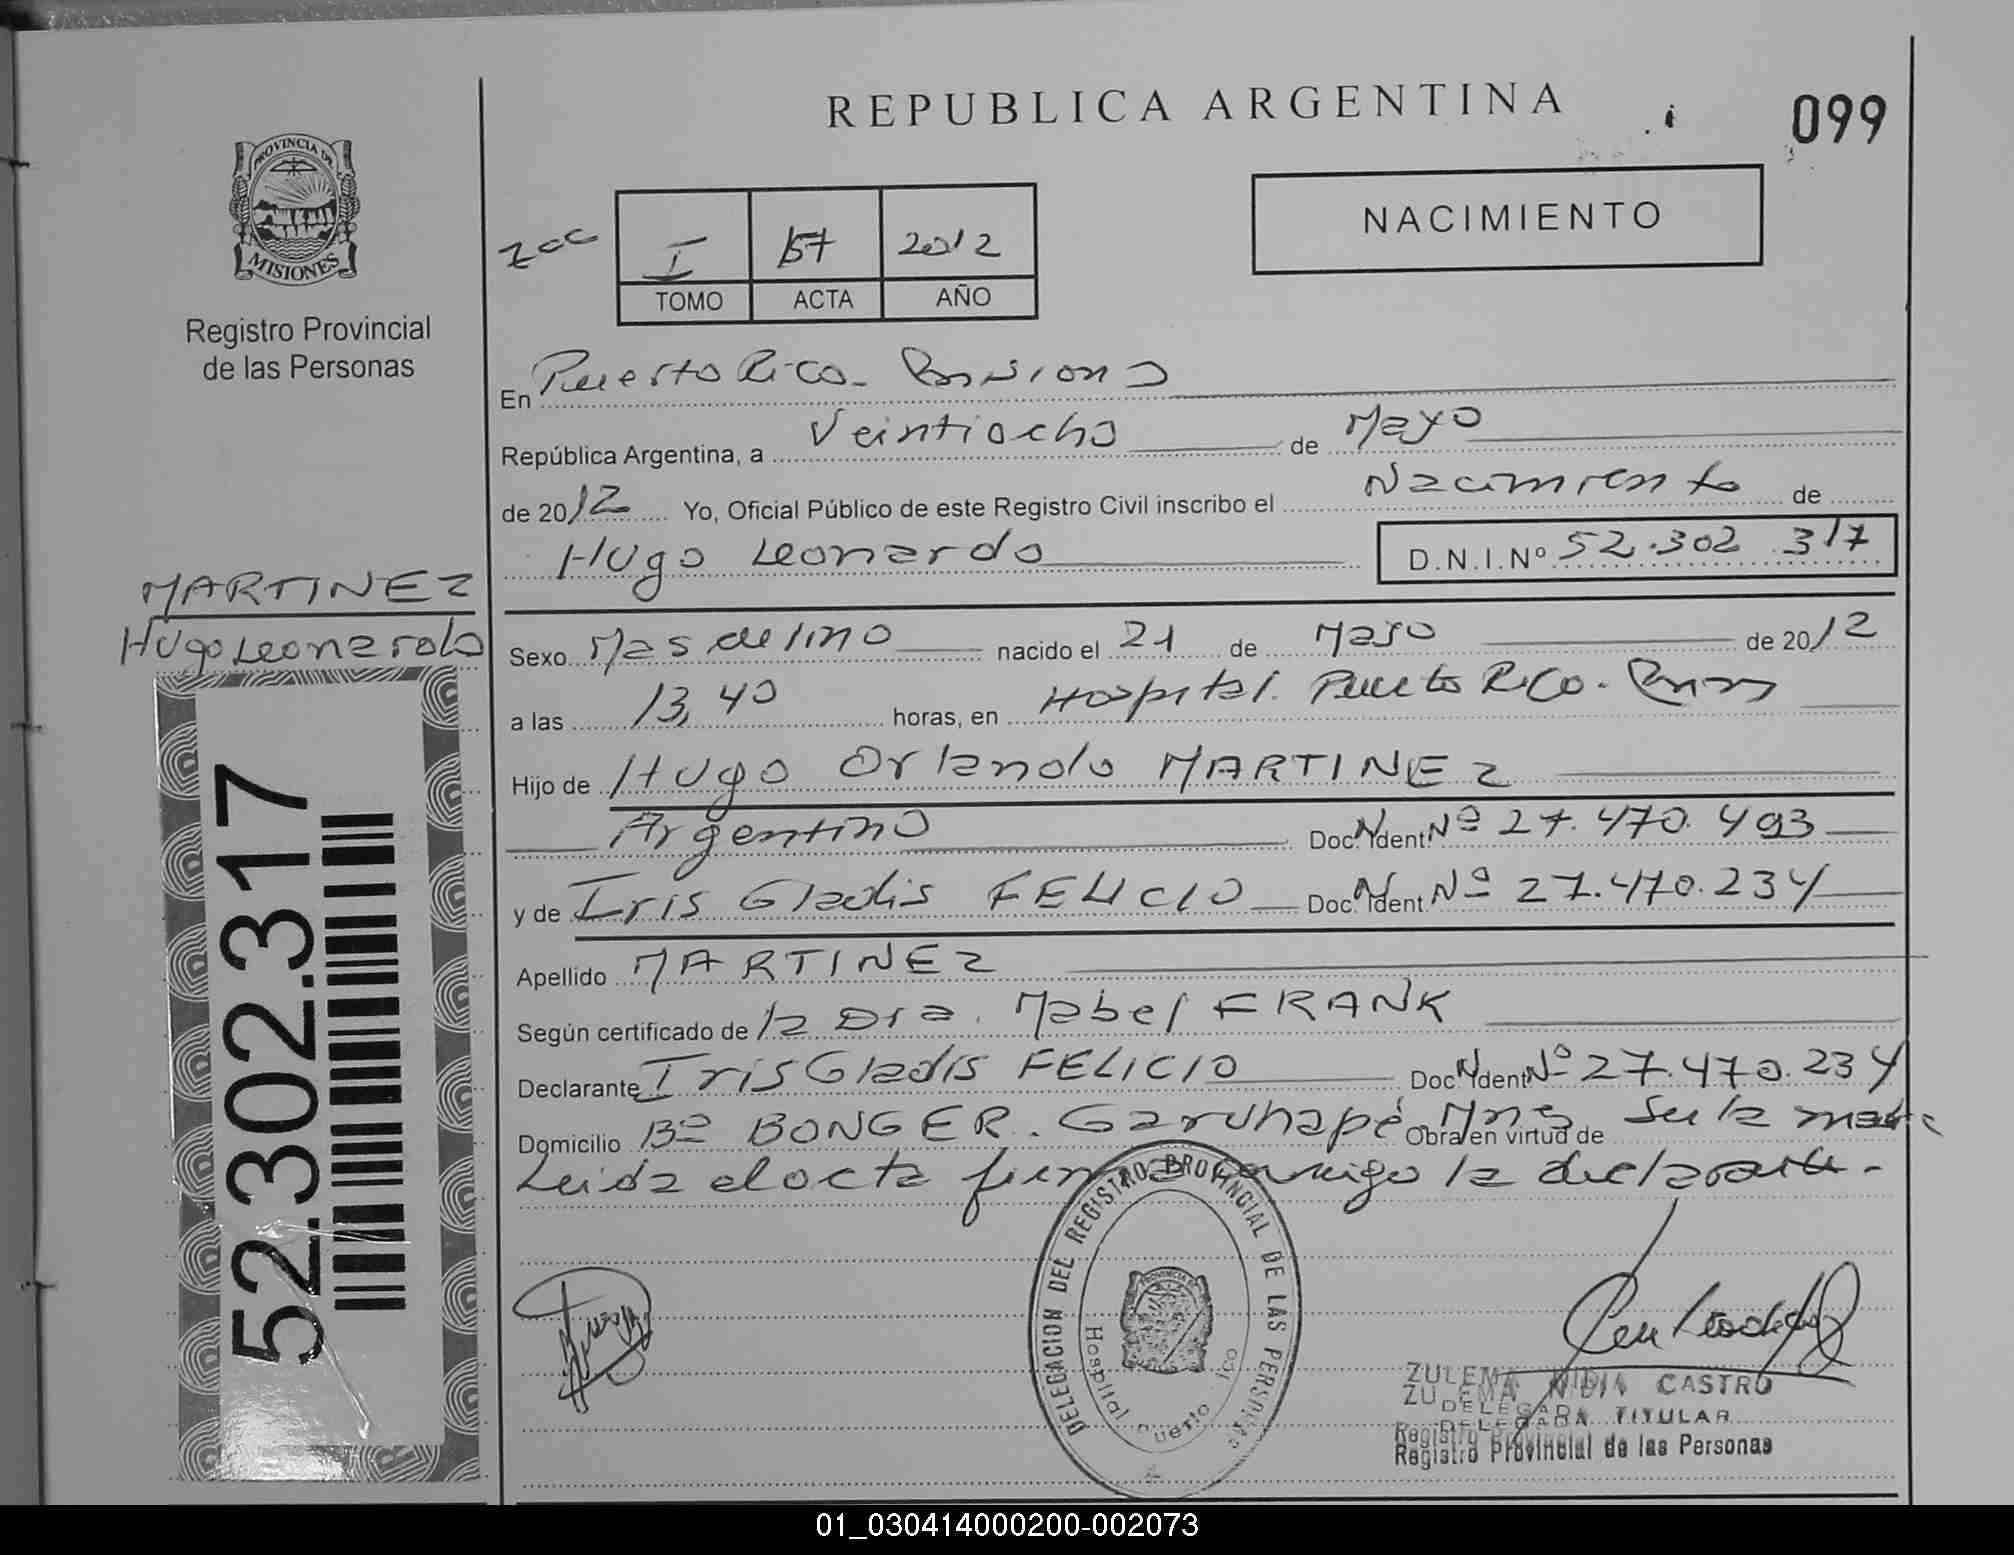 REPUBLICA ARGENTINA
099
PROVINCIA DE
MISIONES
Registro Provincial
de las Personas
NACIMIENTO
I 157 2012
TOMO ACTA AÑO
En Puerto Rico - Misiones
República Argentina, a Veintiocho de Mayo
de 2012 Yo, Oficial Público de este Registro Civil inscribo el Nacimiento de
Hugo Leonardo D.N.I.Nº 52.302.317
MARTINEZ
Hugo Leonardo
52.302.317
Sexo Masculino nacido el 21 de Mayo de 2012
a las 13,40 horas, en Hospital. Puerto Rico - Mnes
Hijo de Hugo Orlando MARTINEZ
Argentino Doc. Ident. Nº 27.470.493
y de Iris Gladis FELICIO Doc. Ident. Nº 27.470.234
Apellido MARTINEZ
Según certificado de la Dra. Mabel FRANK
Declarante Iris Gladis FELICIO Doc. Ident. Nº 27.470.234
Domicilio Bº BONGER. Garuhapé Mnes Obra en virtud de Ser la madre
Leida el acta firma conmigo la declarante.-
DELEGACION DEL REGISTRO PROVINCIAL DE LAS PERSONAS
Hospital Puerto
ZULEMA NIDIA CASTRO
DELEGADA TITULAR
Registro Provincial de las Personas
01_030414000200-002073